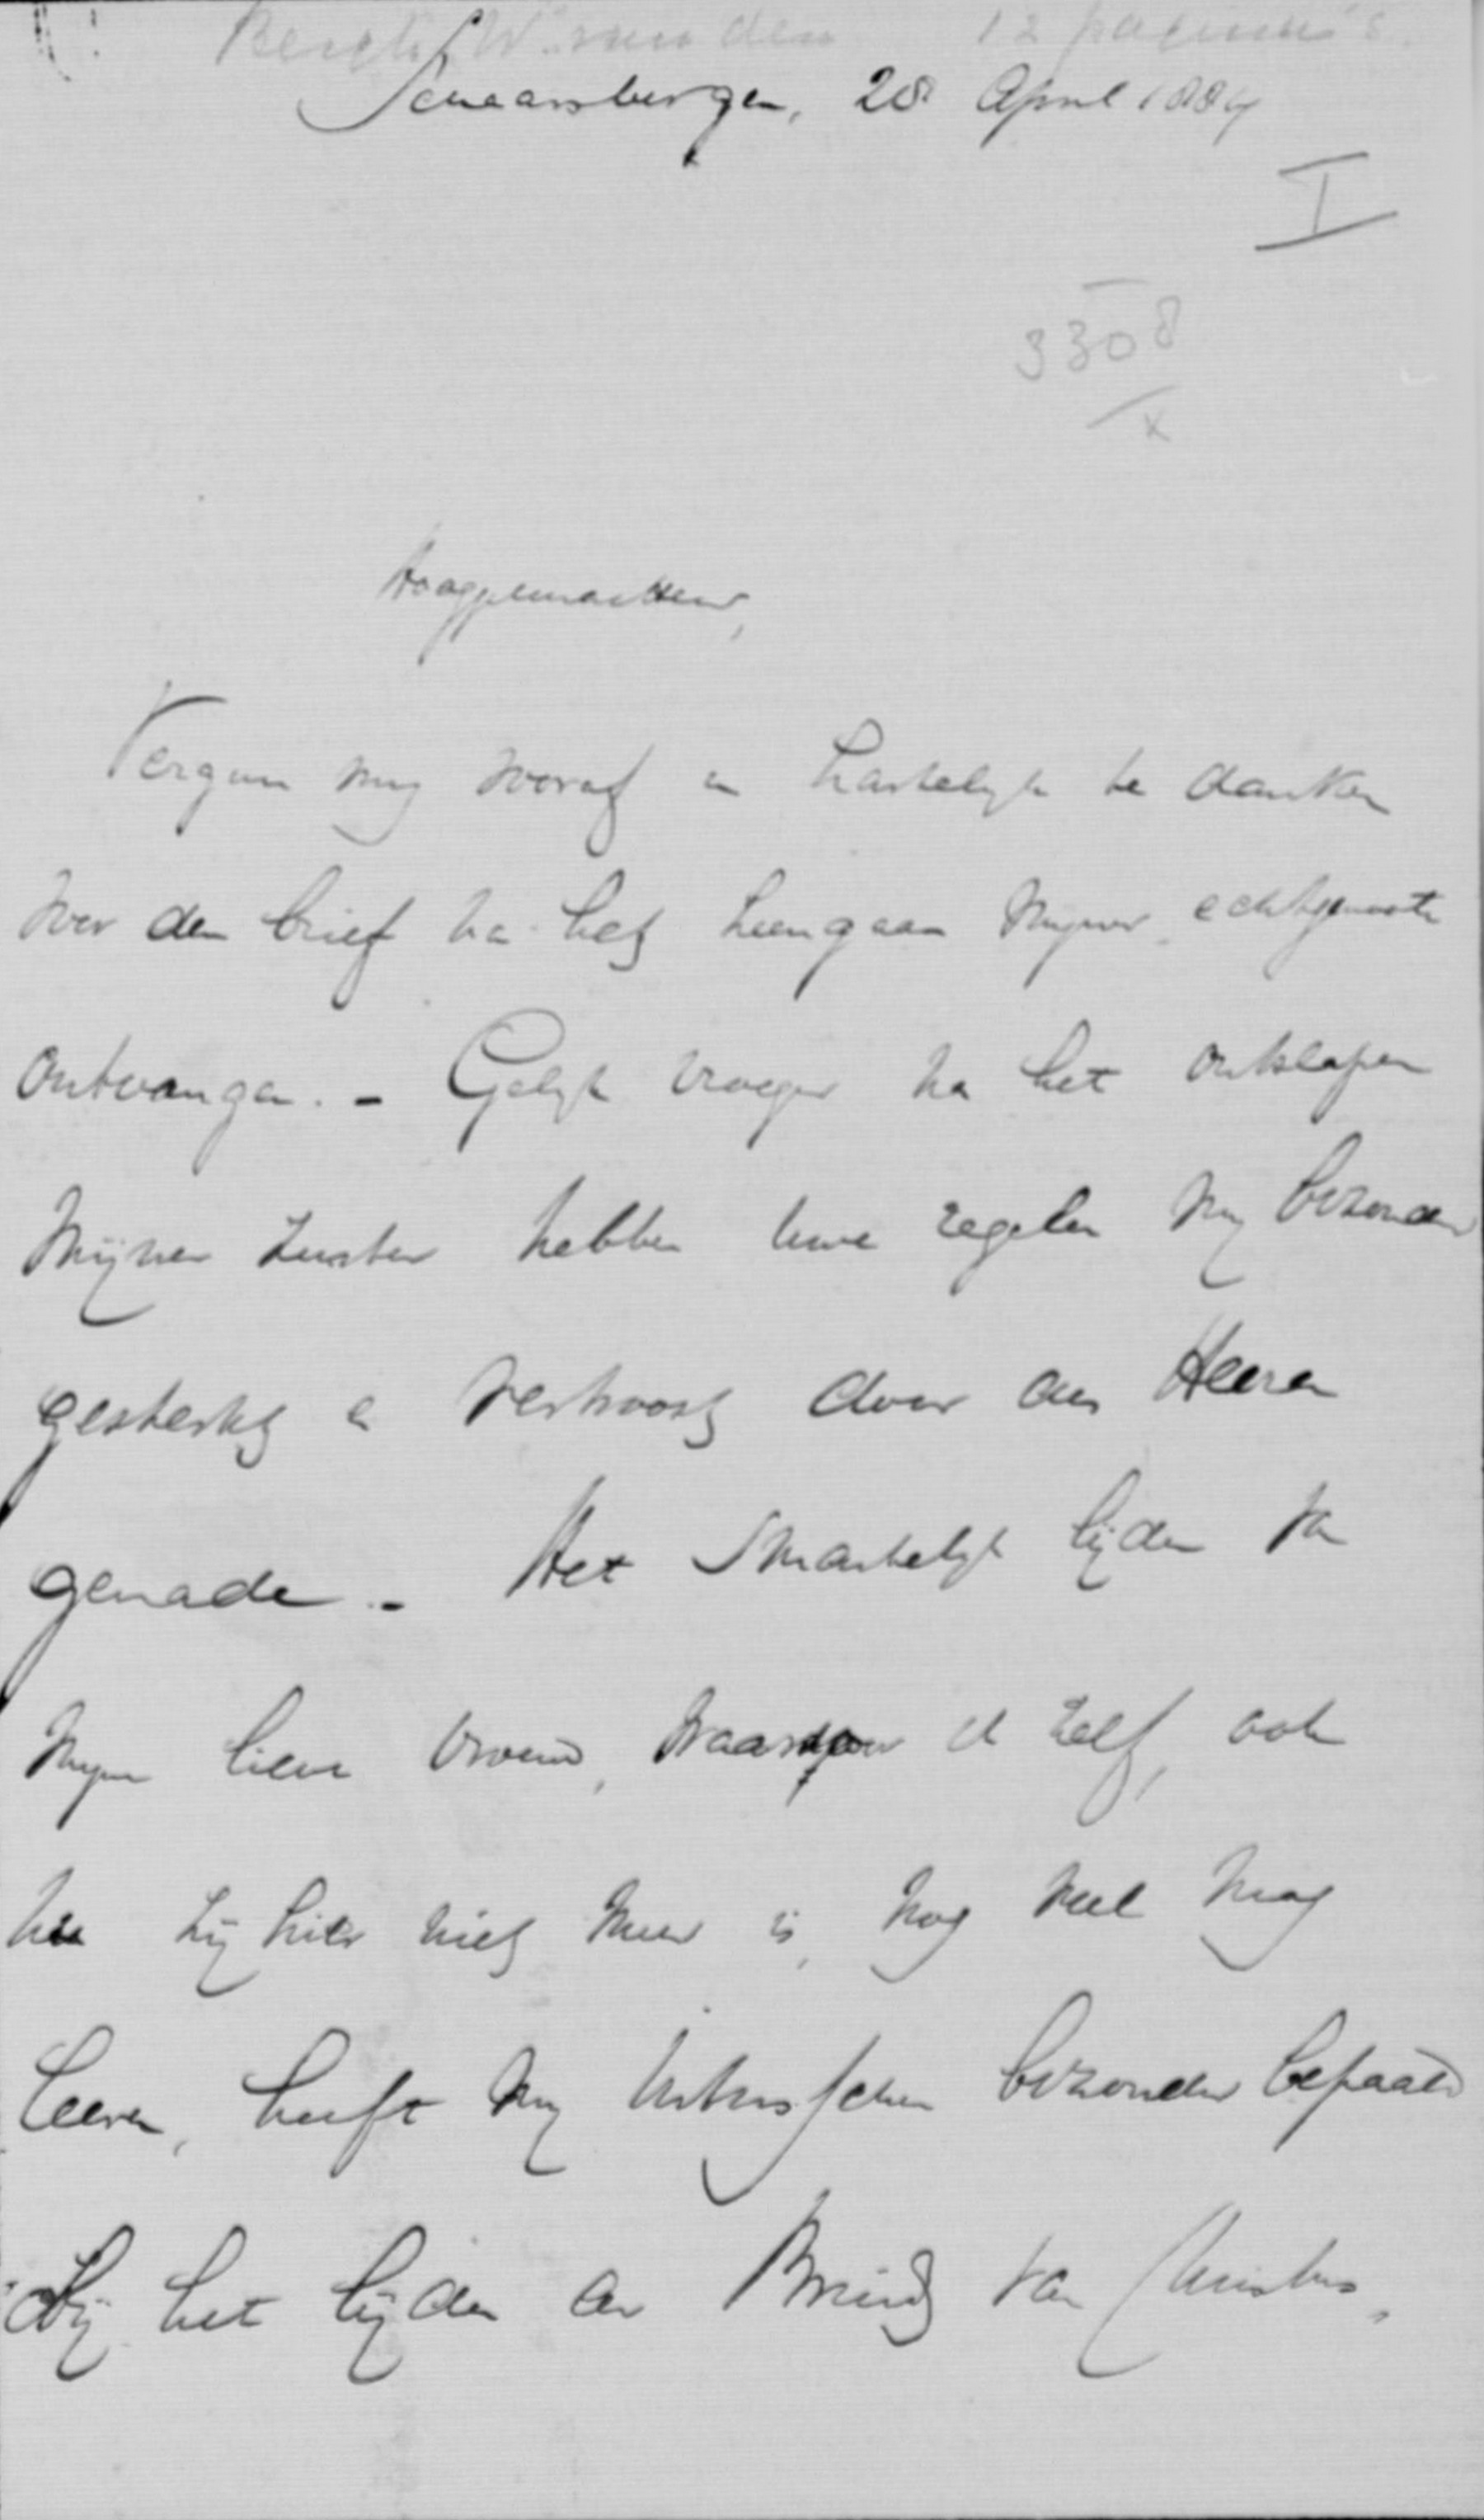 Bergh, W. van den 12 pagina's.
Schaarsbergen, 28 April 1884
I
3308
x
Hooggewaardeerde,
Vergun mij vooraf u hartelijk te danken
voor den brief na het heengaan mijner echtgenoote
ontvangen. - Gelijk vroeger na het ontslapen
mijner zuster hebben uwe regelen mij bizonder
gesterkt en vertroost door des Heeren
genade. - Het smartelijk lijden van
mijne lieve vrouw, waarvan ik zelf, ook
nu zij hier niet meer is, nog veel mag
leeren, heeft mij intusschen bizonder bepaald
bij het lijden der Bruid van Christus,